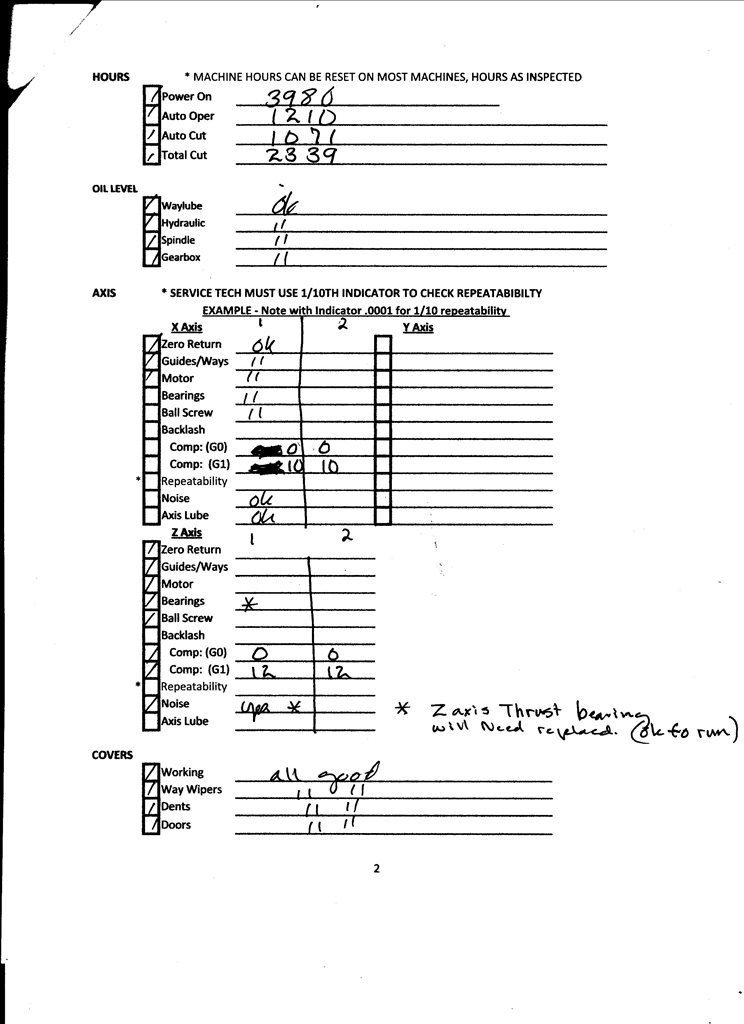 HOURS * MACHINE HOURS CAN BE RESET ON MOST MACHINES, HOURS AS INSPECTED
Power On 3980
Auto Oper 1210
Auto Cut 1071
Total Cut 2339
OIL LEVEL
Waylube ok
Hydraulic "
Spindle "
Gearbox "
AXIS * SERVICE TECH MUST USE 1/10TH INDICATOR TO CHECK REPEATABIBILTY
EXAMPLE - Note with Indicator .0001 for 1/10 repeatability
X Axis 1 2 Y Axis
Zero Return ok
Guides/Ways "
Motor "
Bearings "
Ball Screw "
Backlash
Comp: (G0) 0 0
Comp: (G1) 10 10
* Repeatability
Noise ok
Axis Lube ok
Z Axis 1 2
Zero Return
Guides/Ways
Motor
Bearings *
Ball Screw
Backlash
Comp: (G0) 0 0
Comp: (G1) 12 12
* Repeatability
Noise yes * * Z axis Thrust bearing
will Need replaced. (ok to run)
Axis Lube
COVERS
Working all good
Way Wipers " "
Dents " "
Doors " "
2